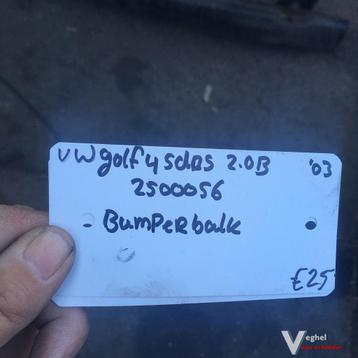 VW golf 4 5drs 2.0B '03
2500056
- Bumperbalk
€25
Veghel